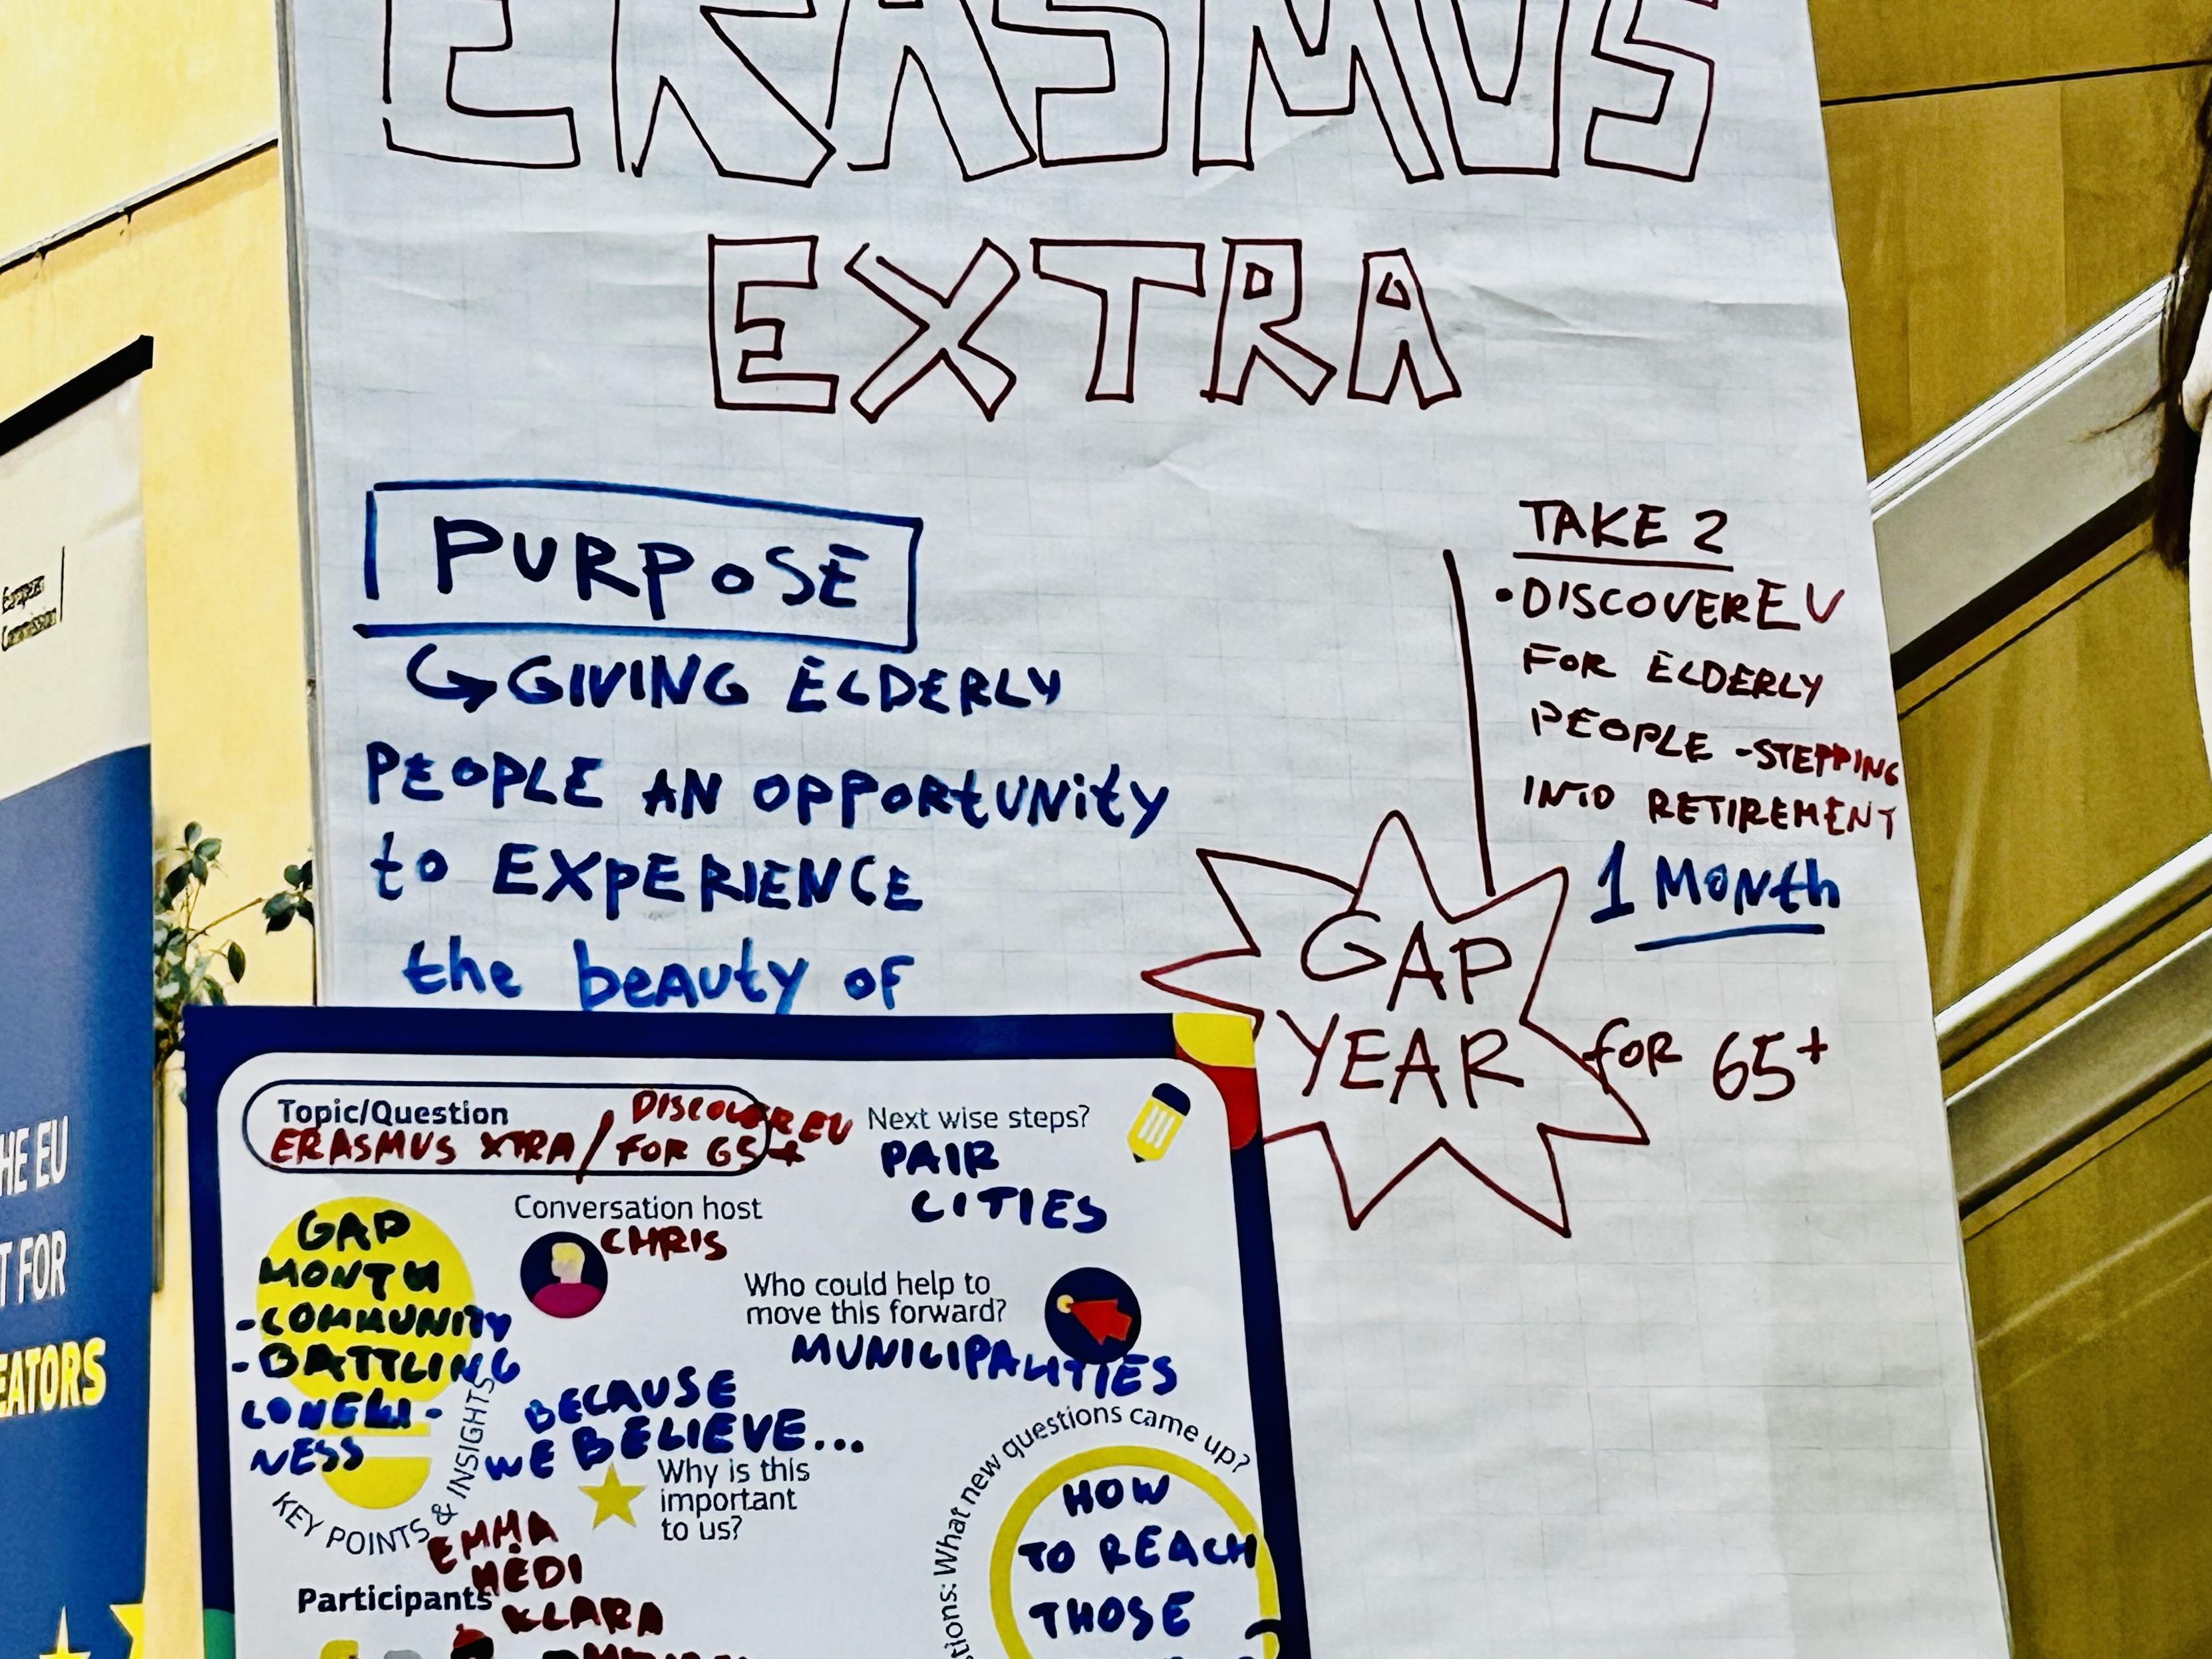 ERASMUS
EXTRA
PURPOSE
GIVING ELDERLY
PEOPLE AN OPPORtUNitY
to EXPERIENCE
the beauty of
TAKE 2
•DISCOVEREU
FOR ELDERLY
PEOPLE -STEPPING
INTO RETIREMENT
1 MONth
GAP
YEAR
for 65+
Topic/Question
ERASMUS XTRA / DISCOVEREU
FOR 65+
Conversation host
CHRIS
GAP
MONTH
-COMMUNITY
-BATTLING
LONELI-
NESS
KEY POINTS & INSIGHTS
Next wise steps?
PAIR
CITIES
Who could help to
move this forward?
MUNICIPALITIES
BECAUSE
WE BELIEVE...
Why is this
important
to us?
What new questions came up?
HOW
TO REACH
THOSE
Participants
EMMA
HEDI
KLARA
European
Commission
HE EU
T FOR
EATORS